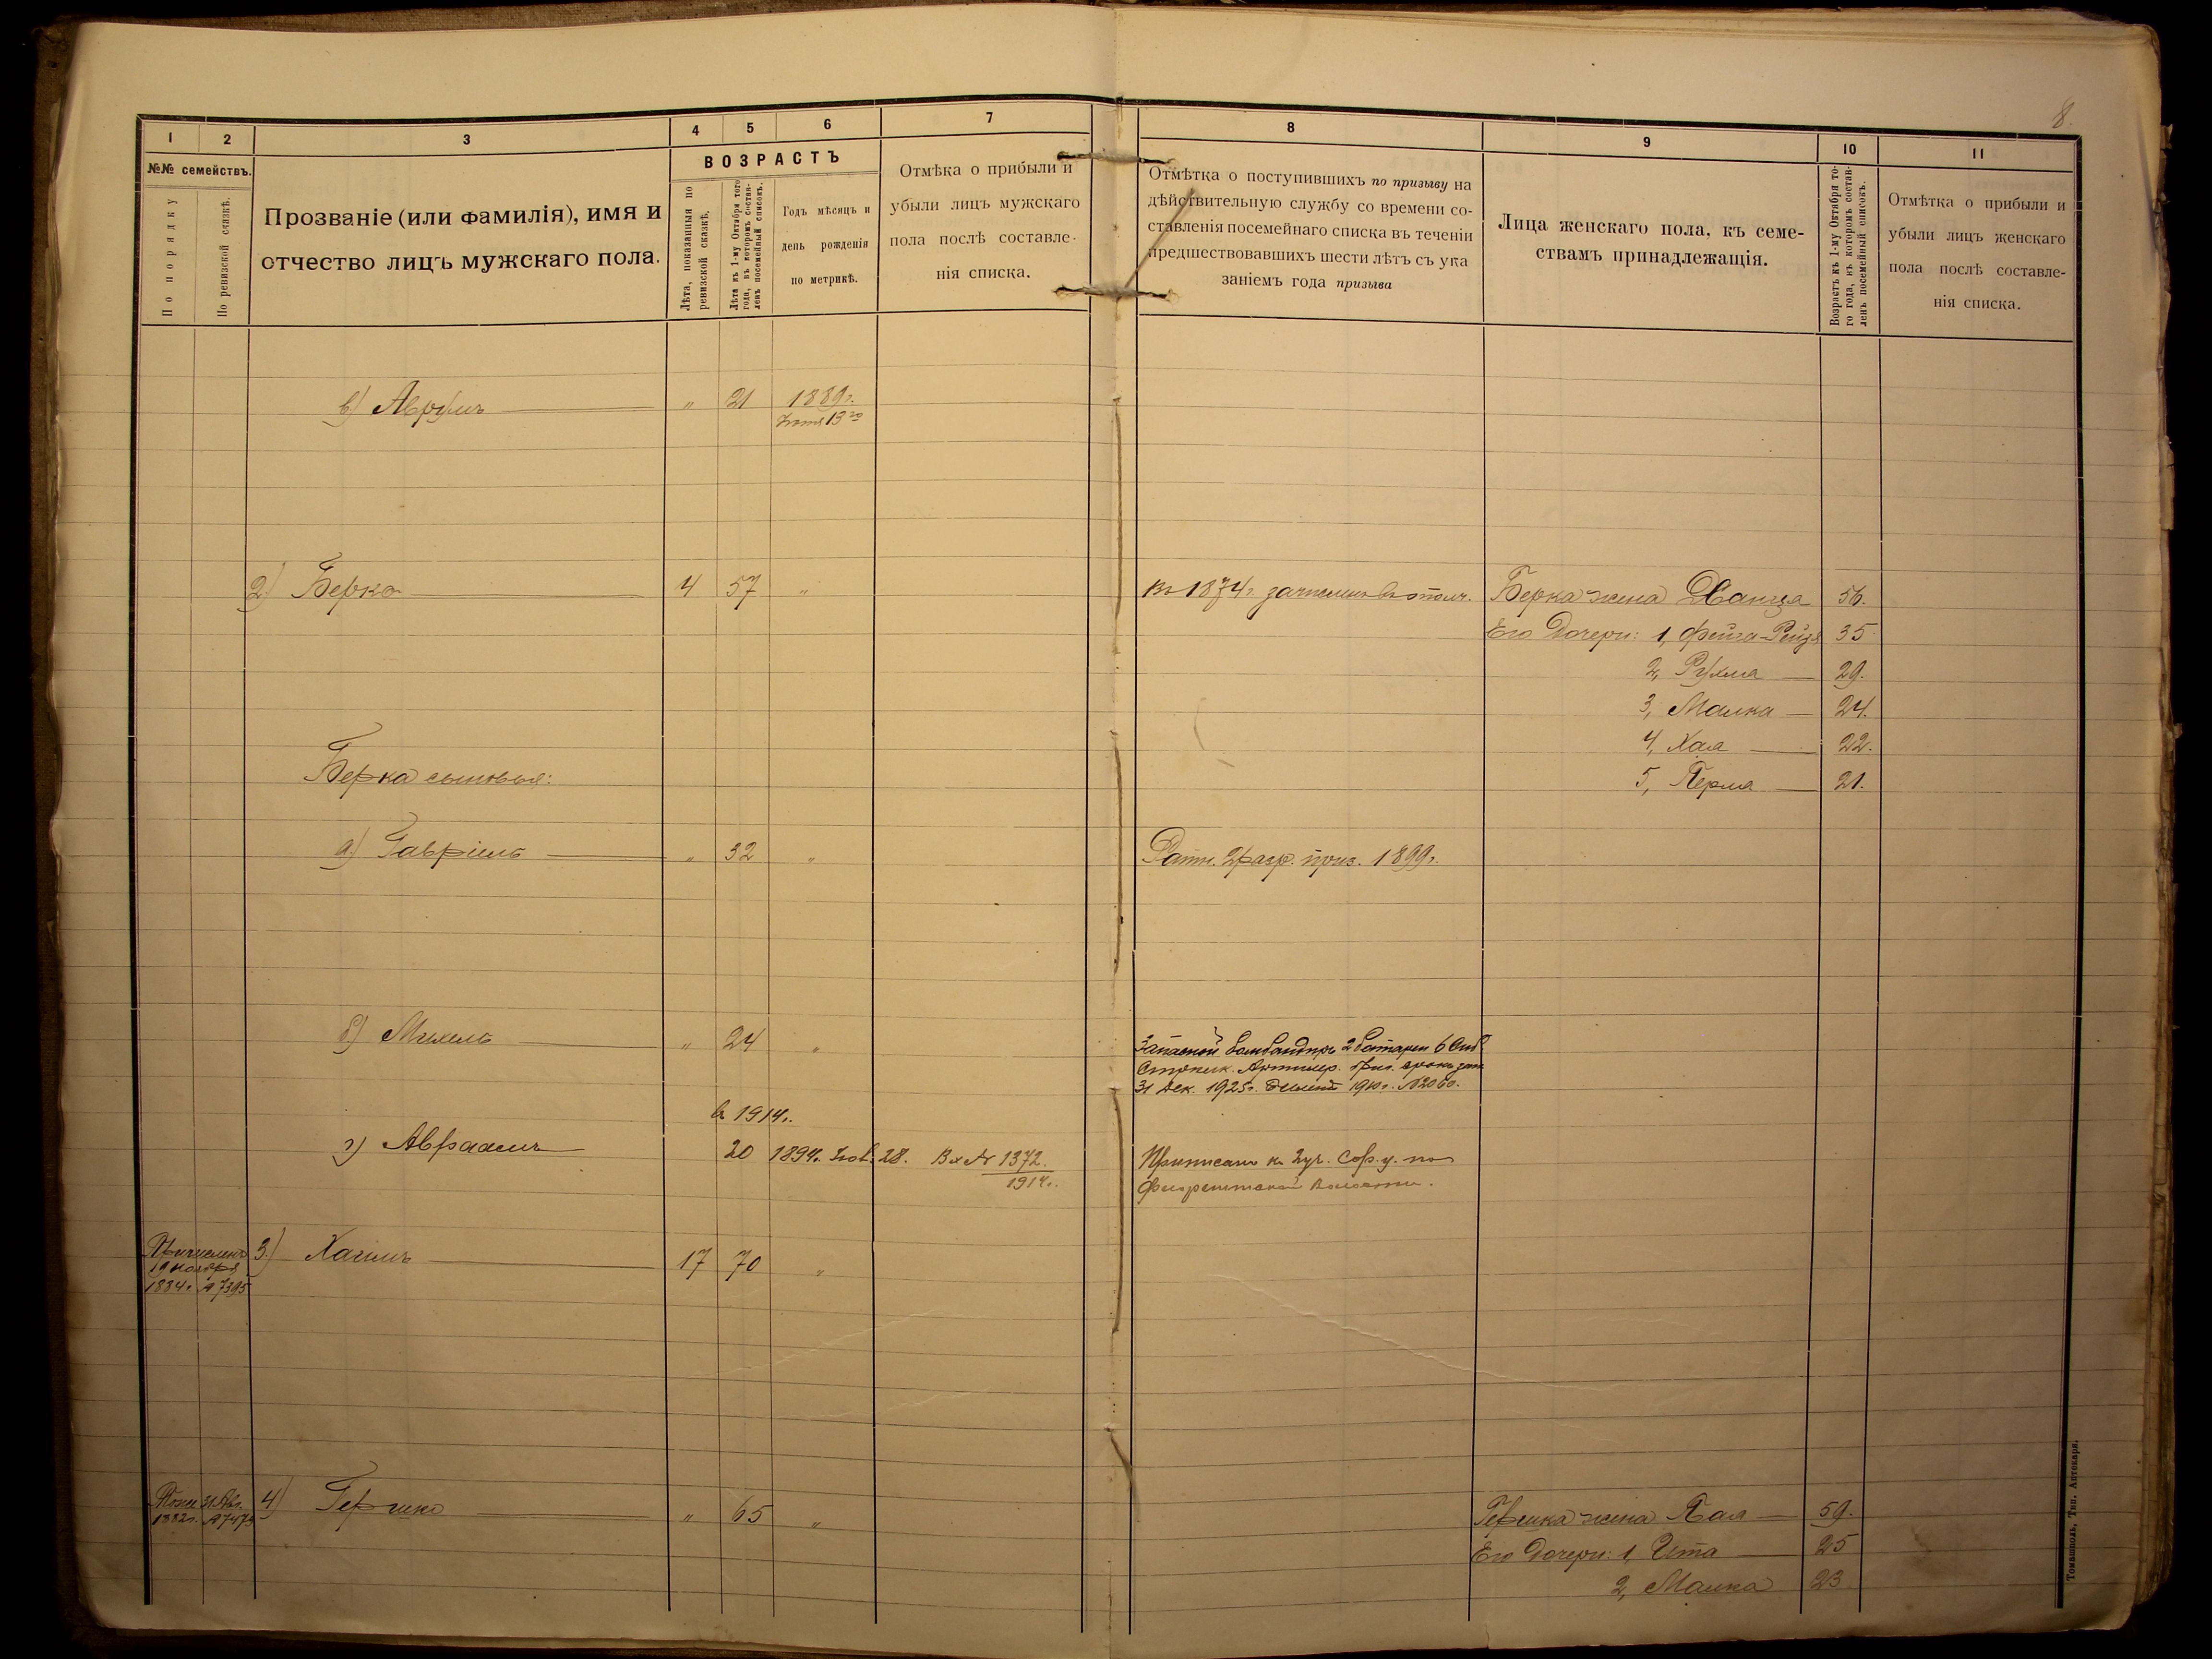 8.
1 2 3 4 5 6 7 8 9 10 11
№№ семействъ.
По порядку
По ревизской сказкѣ.
Прозваніе (или фамилія), имя и
отчество лицъ мужскаго пола.
ВОЗРАСТЪ
Лѣта, показанныя по
ревизской сказкѣ,
Лѣта къ 1-му Октября того
года, въ которомъ состав-
ленъ посемейный списокъ.
Годъ мѣсяцъ и
день рожденія
по метрикѣ.
Отмѣка о прибыли и
убыли лицъ мужскаго
пола послѣ составле-
нія списка.
Отмѣтка о поступившихъ по призыву на
дѣйствительную службу со времени со-
ставленія посемейнаго списка въ теченіи
предшествовавшихъ шести лѣтъ съ ука
заніемъ года призыва
Лица женскаго пола, къ семе-
ствамъ принадлежащія.
Возрастъ къ 1-му Октября то-
го года, въ которомъ состав-
ленъ посемейный списокъ.
Отмѣтка о прибыли и
убыли лицъ женскаго
пола послѣ составле-
нія списка.
в) Аврумъ — „ 21 1889г.
13го
2) Берко — 4 57 „ Въ 1874г. зачисленъ въ ополч. Берка жена Ханця 56.
Его Дочери: 1, Фейга-Рейзя 35
2, Рухма — 29.
3, Малка — 24.
4, Хая — 22.
Берка сыновья: 5, Перма — 21.
а) Гавріилъ — „ 32 „ Ратн. 2 разр. приз. 1899г.
б) Михель — „ 24 „ Запасной бомбандиръ 2 батареи 6
Артилер.
31 Дек. 1925г. 1910г. №2060.
в 1914г.
г) Авраамъ 20 1894г. 28. Вх № 1372.
1914г.
Приписанъ къ 2 уч. по
волости.
Причисленъ 3) Хаимъ — 17 70 „
19 ноября
1884г. № 7395
Тоже 31 Авг. 4) Гершко — „ 65 „ Гершка жена Пая — 59.
1882г. № 7473 Его Дочери: 1, Ита — 25
2, Малка 23.
Томашполь, Тип. Аптекаря.